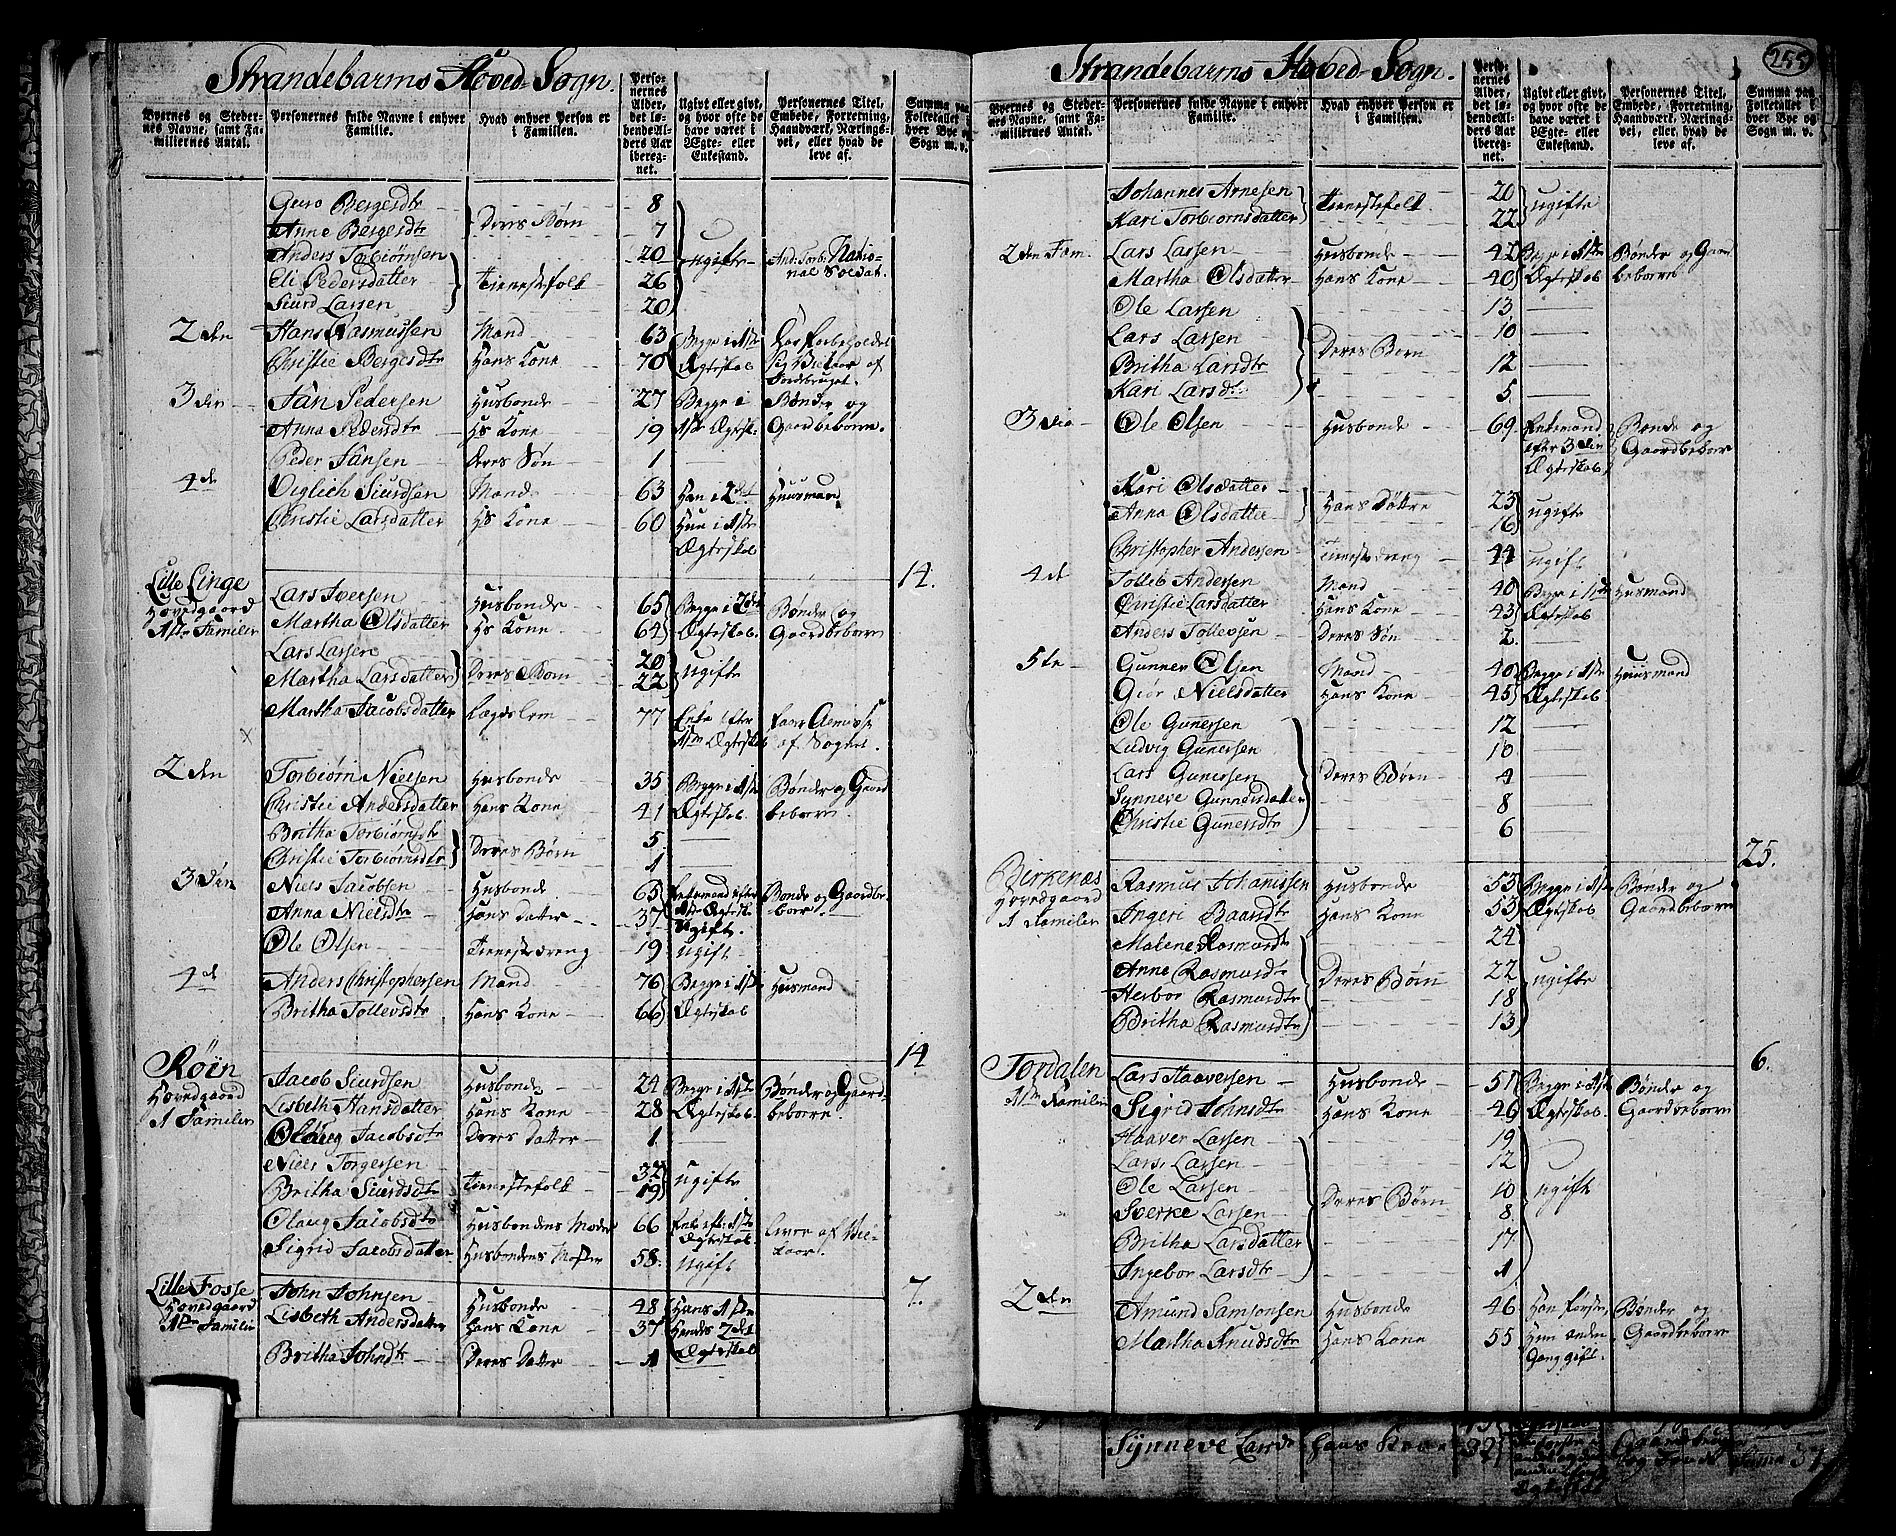 Strandebarms Hoved-Sogn.
Byernes og Steder-
nes Navne, samt Fa-
miliernes Antal.
Personernes fulde Navne i enhver
Familie.
Hvad enhver Person er
i Familien.
Perso-
nernes
Alder,
det lø-
bende Al-
ders Aar
ibereg-
net.
Ugivt eller givt,
og hvor ofte de
have været i
Ægte- eller
Enkestand.
Personernes Titel,
Embede, Forretning,
Haandværk, Nærings-
vei, eller hvad de
leve af.
Summa paa
Folketallet i
hver Bye og
Sogn m. v.
Guro Bergesdtr 8
Anne Bergesdtr Deres Børn 7
Anders Torbiørnsen 20 ugifte And: Torb: Natio-
nal Soldat.
Eli Pedersdatter Tienestefolk 26
Siurd Larsen 20
2den Hans Rasmussen Mand 63 Begge i 1ste Har forbeholdet
Christie Bergesdtr Hans Kone 70 Ægteskab sig Vilkaar af
Gaardbruget.
3die Jan Pedersen Husbonde 27 Begge i Bønder og
Anna Pedersdtr Hs Kone 19 1ste Ægtesk. Gaardbeboere.
Peder Jansen Deres Søn 1
4de Viglich Siurdsen Mand 63 Han i 2det Huusmand
Christie Larsdatter Hs Kone 60 Hun i 1ste
Ægteskab
14.
Lille Linge
Hovedgaard
1ste Familie
Lars Iversen Husbonde 65 Begge i 2det Bønder og
Martha Olsdatter Hs Kone 64 Ægteskab. Gaardbeboere
Lars Larsen 20
Martha Larsdatter Deres Børn 22 ugifte
Martha Jacobsdatter Lægdslem 77 Enke efter faaer Almisse
1ste Ægteskab af Sognet.
2den Torbiørn Nielsen Husbonde 35 Begge i 1ste Bønder og Gaard
Christie Andersdatter Hans Kone 41 Ægteskab. beboere.
Britha Torbiørnsdtr 5
Christie Torbiørnsdtr Deres Børn 1
3die Niels Jacobsen Husbonde 65 Enkemand efter Bonde og Gaardbe-
Anna Nielsdtr Hans Datter 37 1ste Ægtesk. beboer.
Ugift.
Ole Olsen Tienestedreng 19 ugift
4de Anders Christophersen Mand 76 Begge i 1ste Husmand
Britha Tollevsdtr Hans Kone 66 Ægteskab
14
Røin
Hovedgaard
1 Familie
Jacob Siurdsen Husbonde 24 Begge i 1ste Bønder og Gaard-
Lisbeth Hansdatter Hans Kone 28 Ægteskab. beboere
Olaug Jacobsdtr Deres Datter 1
Niels Torgersen 32
Britha Siurdsdtr Tienestefolk 19 ugifte
Olaug Jacobsdtr Husbondens Moder 66 Enke eft: 1ste lever af Vil-
Ægteskab kaar.
Sigrid Jacobsdatter Husbondens Moster 58 ugift
7.
Lille Fosse
Hovedgaard
1ste Familie
John Johnsen Husbonde 48 Hans 1ste
Lisbeth Andersdatter Hans Kone 37 Hendes 2det
Ægteskab
Britha Johnsdtr Deres Datter 1
255
Strandebarms Hoved-Sogn.
Byernes og Steder-
nes Navne, samt Fa-
miliernes Antal.
Personernes fulde Navne i enhver
Familie.
Hvad enhver Person er
i Familien.
Perso-
nernes
Alder,
det lø-
bende Al-
ders Aar
ibereg-
net.
Ugivt eller givt,
og hvor ofte de
have været i
Ægte- eller
Enkestand.
Personernes Titel,
Embede, Forretning,
Haandværk, Nærings-
vei, eller hvad de
leve af.
Summa paa
Folketallet i
hver Bye og
Sogn m. v.
Johannes Arnesen Tienestefolk 20 ugifte
Kari Torbiørnsdatter 22
2den Fam. Lars Larsen Husbonde 42 Begge i 1ste Bønder og Gaard
Martha Olsdatter Hans Kone 40 Ægteskab beboere
Ole Larsen 13
Lars Larsen 10
Britha Larsdtr Deres Børn 12
Kari Larsdtr 5
3die Ole Olsen Husbonde 69 Enkemand Bonde og
efter 3die Gaardbeboer
Ægteskab
Kari Olsdatter Hans Døttre 23 ugifte
Anna Olsdatter 16
Christopher Andersen Tienestedreng 44 ugift
4de Tolleb Andersen Mand 40 Begge i 1ste Husmand
Christie Larsdatter Hans Kone 43 Ægteskab
Anders Tollevsen Deres Søn 2
5te Gunner Olsen Mand 40 Begge i 1ste Huusmand
Giør Nielsdatter Hans Kone 45 Ægteskab
Ole Gunersen 12
Ludvig Gunersen 10
Lars Gunersen Deres Børn 4
Synneve Gunnersdatter 8
Christie Gunersdtr 6
25.
Birkenæs
Hovedgaard
1 Familie
Rasmus Johanissen Husbonde 53 Begge i 1ste Bønder og
Ingeri Baardsdtr Hans Kone 53 Ægteskab Gaardbeboere
Malene Rasmusdtr 24
Anne Rasmusdtr Deres Børn 22 ugifte
Herbor Rasmusdtr 18
Britha Rasmusdtr 13
6.
Tordalen
1ste Familie
Lars Haaversen Husbonde 51 Begge i 1ste Bønder og
Sigrid Johnsdtr Hans Kone 46 Ægteskab. Gaardbeboere
Haaver Larsen 19
Lars Larsen 12
Ole Larsen 10 ugifte
Sverke Larsen Deres Børn 8
Britha Larsdatter 17
Ingebor Larsdtr 1
2den Amund Samsonsen Husbonde 46 Han første Bønder og
Martha Knudsdtr Hans Kone 55 Hun anden Gaardbeboere
Gang gift.
Synneve Larsdtr Hans Kone